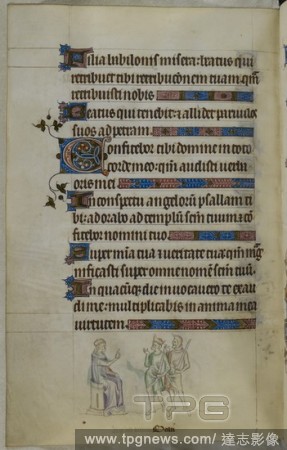 Filia babilonis misera: beatus qui
retribuet tibi retributionem tuam qm̄
retribuisti nobis
Beatus qui tenebit: & allidet paruulos
suos ad petram.
Confitebor tibi domine in toto
corde meo: qm̄ audisti uerba
oris mei
In conspectu angelorū psallam ti
bi: adorabo ad templū sc̄m tuum & con
fitebor nomini tuo.
Super mīa tua & ueritate tua: qm̄
nificasti super omne nomē sc̄m tuū.
In quacūq; die inuocauero te exau
di me: multiplicabis in anima mea
uirtutem.
TPG
www.tpgnews.com/ 達志影像